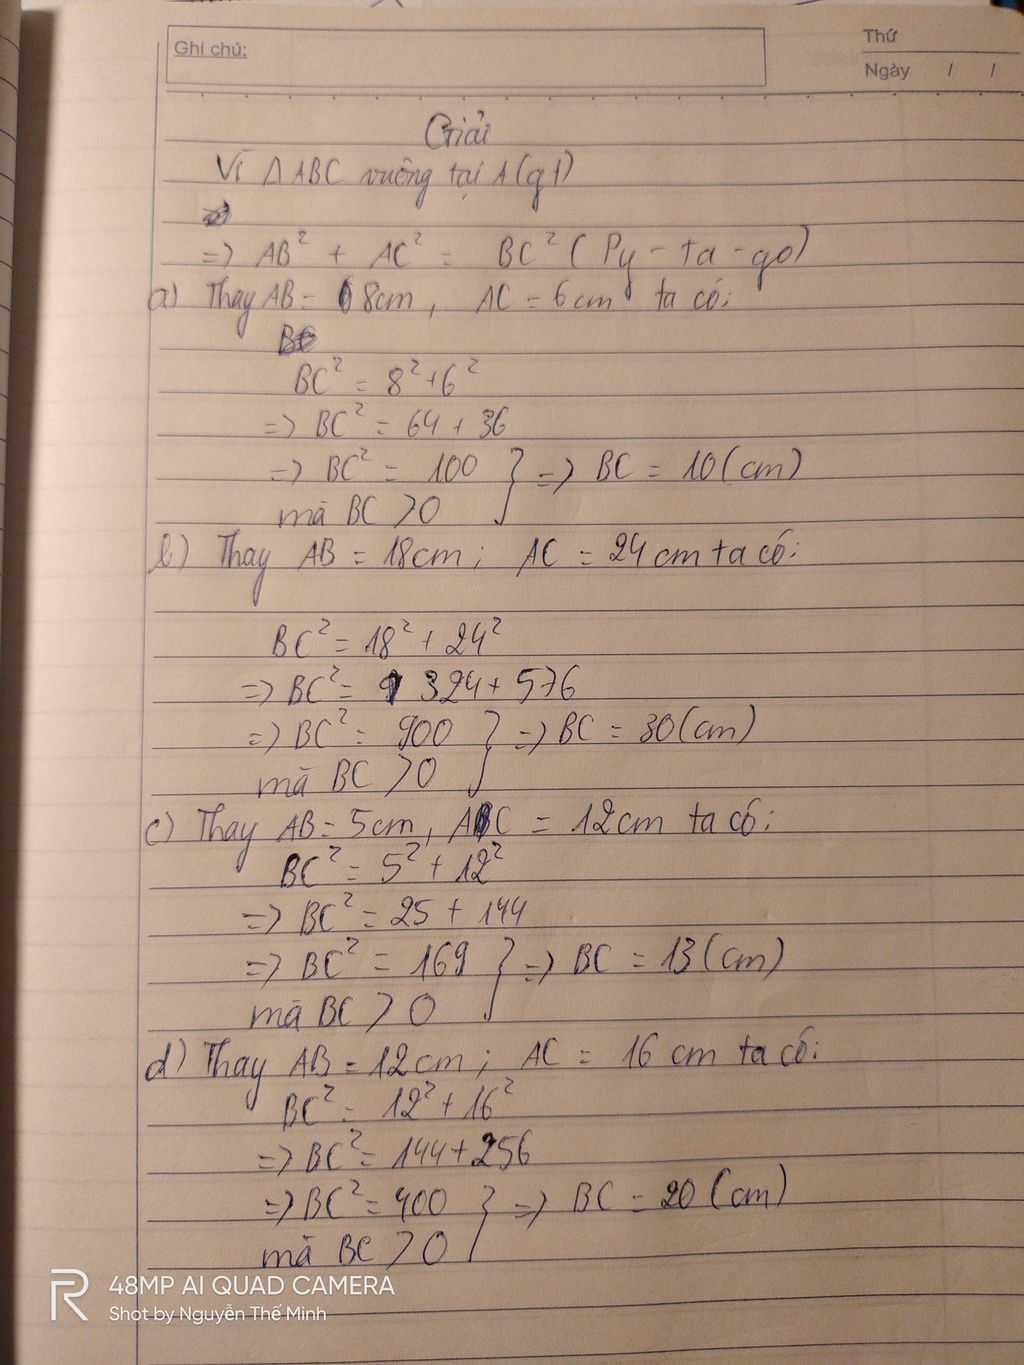 Ghi chú:
Thứ
Ngày / /
Giải
Vì Δ ABC vuông tại A (gt)
=> AB² + AC² = BC² ( Py - ta - go)
a) Thay AB = 8cm, AC = 6cm ta có:
BC² = 8² + 6²
=> BC² = 64 + 36
=> BC² = 100 } => BC = 10 (cm)
mà BC > 0
b) Thay AB = 18cm ; AC = 24cm ta có:
BC² = 18² + 24²
=> BC² = 324 + 576
=> BC² = 900 } => BC = 30 (cm)
mà BC > 0
c) Thay AB = 5cm, AC = 12cm ta có:
BC² = 5² + 12²
=> BC² = 25 + 144
=> BC² = 169 } => BC = 13 (cm)
mà BC > 0
d) Thay AB = 12cm ; AC = 16 cm ta có:
BC² = 12² + 16²
=> BC² = 144 + 256
=> BC² = 400 } => BC = 20 (cm)
mà BC > 0
48MP AI QUAD CAMERA
Shot by Nguyễn Thế Minh